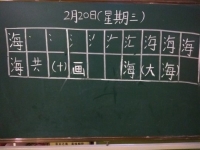 2月20日(星期三)
海 丶 丶 氵 氵 氵 汇 海 海 海
海 共 (十) 画 海 (大海)